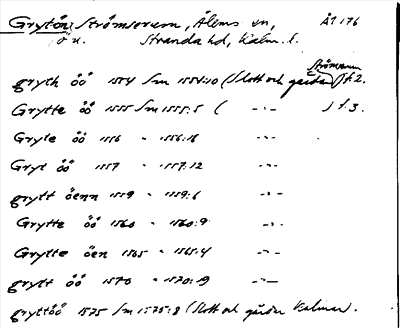 Grytön, Strömserum, Ålems sn, ÅI 176
ö n. Stranda hd, Kalm. l.
Strömserum
gryth öö 1554 Sm 1554:10 (Slott och gårdar) f. 2.
Grytte öö 1555 Sm 1555:5 ( -"- ) f. 3.
Gryte öö 1556 " 1556:18 -"-
Gryt öö 1557 " 1557:12 -"-
grytt öenn 1559 " 1559:6 -"-
Grytte öö 1560 " 1560:9 -"-
Grytte öen 1565 " 1565:4 -"-
grytt öö 1570 " 1570:19 -"-
gryttöö 1575 Sm 1575:8 (Slott och gårdar Kalmar).